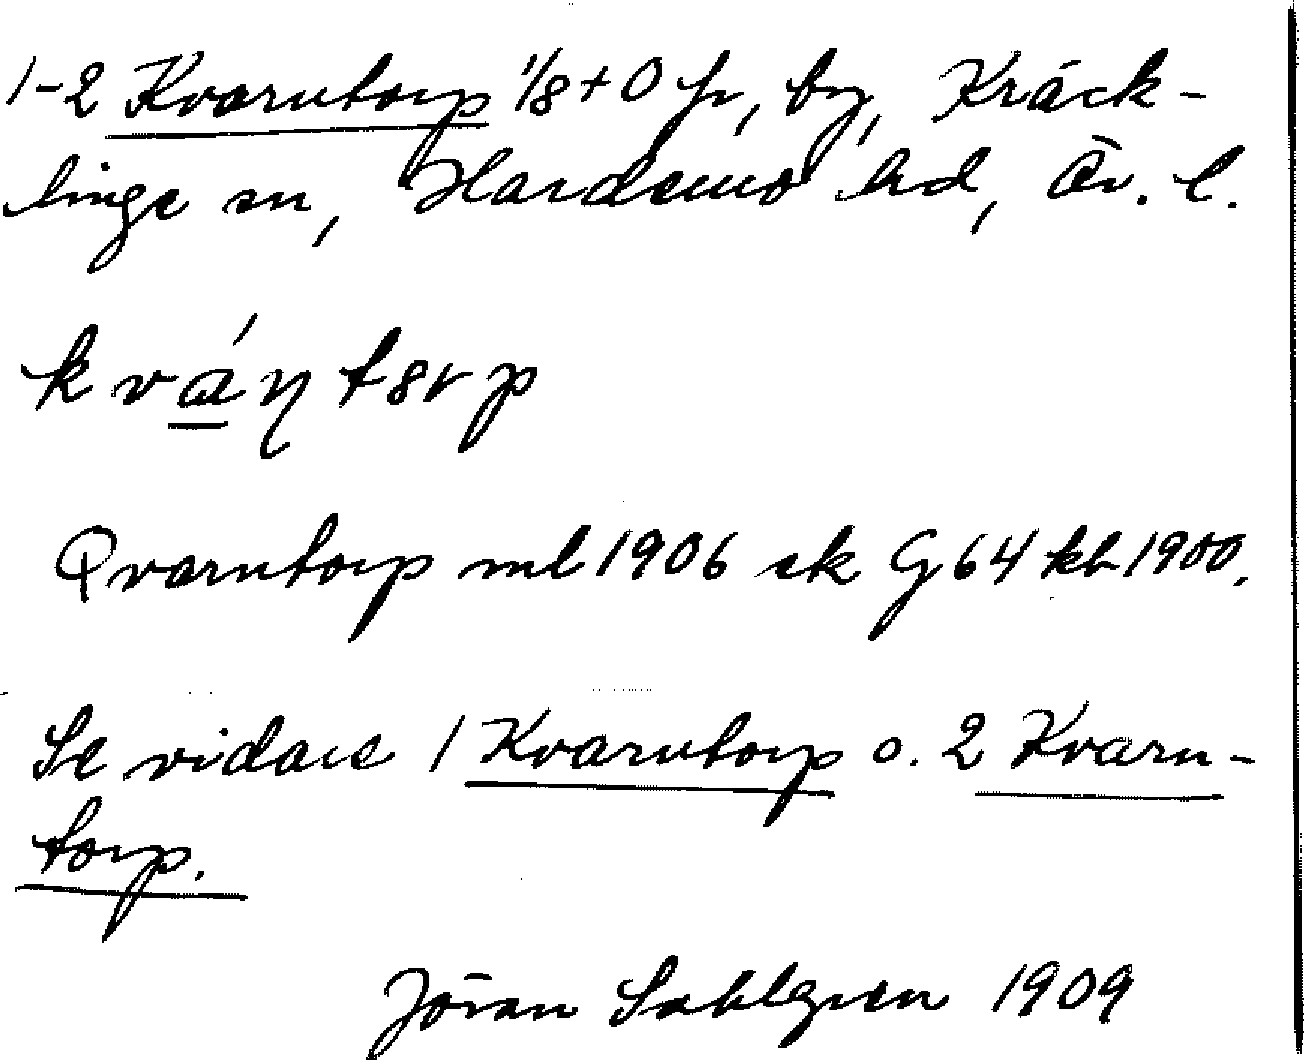 1-2 Kvarntorp 1/8+0 fr, by, Kräck-
linge sn, Hardemo hd, Ör. l.
kvá̲ŋtȣrp
Qvarntorp ml 1906 sk G 64 kb 1900.
Se vidare 1 Kvarntorp o. 2 Kvarn-
torp.
Jöran Sahlgren 1909